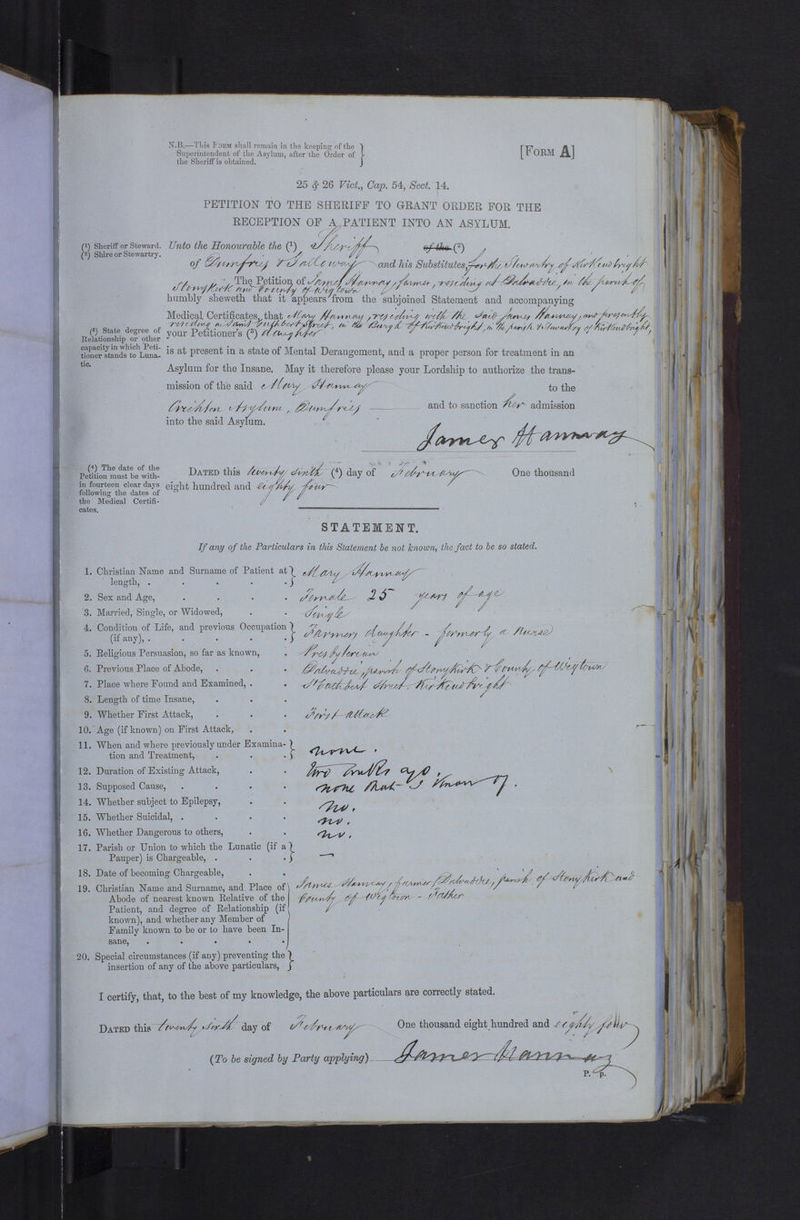 N.B.—This FORM shall remain in the keeping of the
Superintendent of the Asylum, after the Order of
the Sheriff is obtained.
[FORM A]
25 & 26 Vict., Cap. 54, Sect. 14.
PETITION TO THE SHERIFF TO GRANT ORDER FOR THE
RECEPTION OF A PATIENT INTO AN ASYLUM.
(¹) Sheriff or Steward.
(²) Shire or Stewartry.
Unto the Honourable the (¹) Sheriff of the (²)
of Dumfries & Galloway and his Substitutes for the Stewartry of Kirkcudbright
The Petition of James Hannay, farmer, residing at Balvaddie, in the parish of
Stonykirk and County of Wigtown
humbly sheweth that it appears from the subjoined Statement and accompanying
Medical Certificates, that Mary Hannay, residing with the said James Hannay, and presently
residing in Saint Cuthbert Street, in the Burgh of Kirkcudbright, in the parish & Stewartry of Kirkcudbright,
your Petitioner's (³) daughter
(³) State degree of
Relationship or other
capacity in which Peti-
tioner stands to Luna-
tic.
is at present in a state of Mental Derangement, and a proper person for treatment in an
Asylum for the Insane. May it therefore please your Lordship to authorize the trans-
mission of the said Mary Hannay to the
Crichton Asylum, Dumfries and to sanction her admission
into the said Asylum.
James Hannay
(⁴) The date of the
Petition must be with-
in fourteen clear days
following the dates of
the Medical Certifi-
cates.
DATED this twenty sixth (⁴) day of February One thousand
eight hundred and eighty four
STATEMENT.
If any of the Particulars in this Statement be not known, the fact to be so stated.
1. Christian Name and Surname of Patient at length, . Mary Hannay
2. Sex and Age, . Female 25 years of age
3. Married, Single, or Widowed, . Single
4. Condition of Life, and previous Occupation (if any), . Farmers daughter - formerly a Nurse
5. Religious Persuasion, so far as known, . Presbyterian
6. Previous Place of Abode, . Balvaddie, parish of Stonykirk & County of Wigtown
7. Place where Found and Examined, . St Cuthbert Street, Kirkcudbright
8. Length of time Insane, .
9. Whether First Attack, . First attack
10. Age (if known) on First Attack, .
11. When and where previously under Examina-
tion and Treatment, . none.
12. Duration of Existing Attack, . two weeks ago.
13. Supposed Cause, . none that I know of.
14. Whether subject to Epilepsy, . no.
15. Whether Suicidal, . no.
16. Whether Dangerous to others, . no.
17. Parish or Union to which the Lunatic (if a
Pauper) is Chargeable, . —
18. Date of becoming Chargeable, .
19. Christian Name and Surname, and Place of
Abode of nearest known Relative of the
Patient, and degree of Relationship (if
known), and whether any Member of
Family known to be or to have been In-
sane, .
James Hannay, farmer, Balvaddie, parish of Stonykirk and
County of Wigtown - Father
20. Special circumstances (if any) preventing the
insertion of any of the above particulars,
I certify, that, to the best of my knowledge, the above particulars are correctly stated.
DATED this twenty sixth day of February One thousand eight hundred and eighty four
(To be signed by Party applying) James Hannay
P. p.